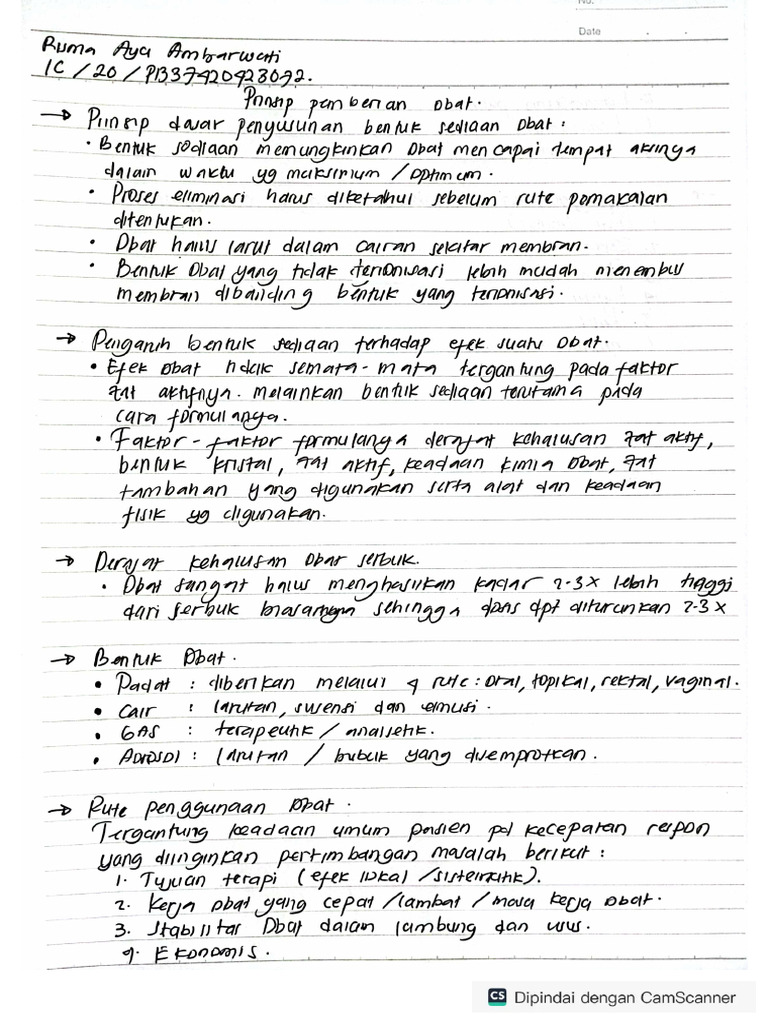 No.
Date
Ruma Ayu Ambarwati
1C / 20 / P1337420423072.
Prinsip pemberian obat.
→ Prinsip dasar penyusunan bentuk sediaan obat :
• Bentuk sediaan memungkinkan obat mencapai tempat aksinya
dalam waktu yg maksimum / optimum.
• Proses eliminasi harus diketahui sebelum rute pemakaian
ditentukan.
• Obat harus larut dalam cairan sekitar membran.
• Bentuk obat yang tidak terionisasi lebih mudah menembus
membran dibanding bentuk yang terionisasi.
→ Pengaruh bentuk sediaan terhadap efek suatu obat.
• Efek obat tidak semata-mata tergantung pada faktor
zat aktifnya. melainkan bentuk sediaan terutama pada
cara formulanya.
• Faktor-faktor formulanya derajat kehalusan zat aktif,
bentuk kristal, zat aktif, keadaan kimia obat, zat
tambahan yang digunakan serta alat dan keadaan
fisik yg digunakan.
→ Derajat kehalusan obat serbuk.
• Obat sangat halus menghasilkan kadar 2-3x lebih tinggi
dari serbuk biasa sehingga dosis dpt diturunkan 2-3x
→ Bentuk Obat.
• Padat : diberikan melalui 4 rute : oral, topikal, rektal, vaginal.
• Cair : larutan, suvensi dan emulsi.
• GAS : terapeutik / analsetik.
• Aorosol : larutan / bubuk yang disemprotkan.
→ Rute penggunaan Obat.
Tergantung keadaan umum pasien pd kecepatan respon
yang diinginkan pertimbangan masalah berikut :
1. Tujuan terapi (efek lokal / sistemik).
2. Kerja obat yang cepat / lambat / masa kerja obat.
3. Stabilitas Obat dalam lambung dan usus.
4. Ekonomis.
CS Dipindai dengan CamScanner